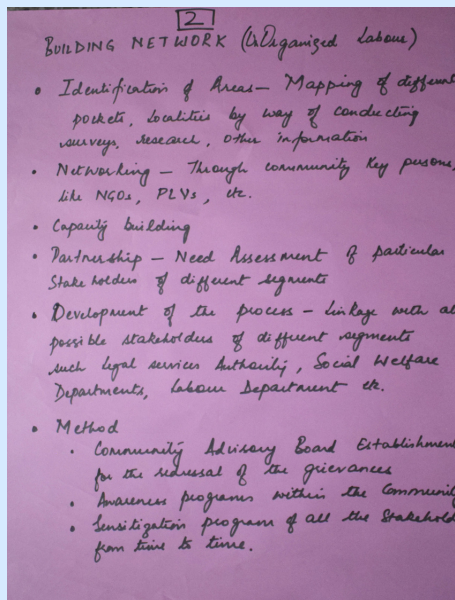 2
BUILDING NETWORK (UnOrganized Labour)
• Identification of Areas – Mapping of differen
pockets, Localities by way of conducting
surveys, research, other information
• Networking – Through community key persons,
like NGOs, PLVs, etc.
• Capacity building
• Partnership – Need Assessment of particular
Stake holders of different segments
• Development of the process – Linkage with al
possible stakeholders of different segments
such legal services Authority, Social Welfare
Departments, Labour Department etc.
• Method
• Community Advisory Board Establishmen
for the redressal of the grievances
• Awareness programs within the Community
• Sensitization program of all the Stakehold
from time to time.